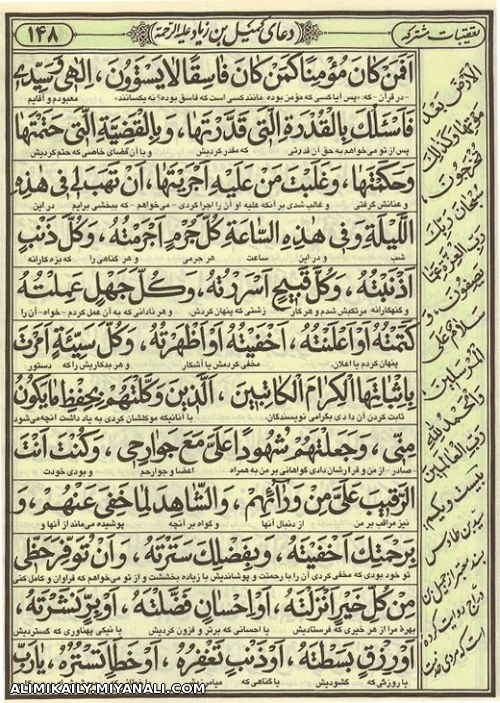 تعقیبات مشترکه
دعای کمیل بن زیاد علیه الرحمة
۱۴۸
اَفَمَنْ كانَ مُؤْمِناً كَمَنْ كانَ فاسِقاً لا يَسْتَوُونَ، اِلهى وَ سَيِّدى
در قرآن - که: «پس آیا کسی که مؤمن بوده مانند کسی است که فاسق بوده؟ نه یکسانند» معبودم و آقایم
فَاَسْئَلُكَ بِالْقُدْرَةِ الَّتى قَدَّرْتَها، وَ بِالْقَضِيَّةِ الَّتى حَتَمْتَها
پس از تو می‌خواهم به حق آن قدرتی که مقدر کردیش و با آن قضای خاصی که حتم کردیش
وَ حَكَمْتَها، وَ غَلَبْتَ مَنْ عَلَيْهِ اَجْرَيْتَها، اَنْ تَهَبَ لى فى هذِهِ
و غالب شدی بر آنکه علیه او آن را اجرا کردی - می‌خواهم - که ببخشی برایم در این
اللَّيْلَةِ وَ فى هذِهِ السّاعَةِ كُلَّ جُرْمٍ اَجْرَمْتُهُ، وَ كُلَّ ذَنْبٍ
شب و در این ساعت هر جرمی و هر گناهی را که بزه‌کارانه
اَذْنَبْتُهُ، وَ كُلَّ قَبيحٍ اَسْرَرْتُهُ، وَ كُلَّ جَهْلٍ عَمِلْتُهُ
و گنهکارانه مرتکبش شدم و هر کار زشتی که پنهان کردش، و هر نادانی که به آن عمل کردم - خواه - آن را
كَتَمْتُهُ اَوْ اَعْلَنْتُهُ، اَخْفَيْتُهُ اَوْ اَظْهَرْتُهُ، وَ كُلَّ سَيِّئَةٍ اَمَرْتَ
پنهان کردم یا اعلان. مخفی کردمش یا آشکار و هر بدکاریش را که دستور
بِاِثْباتِهَا الْكِرامَ الْكاتِبينَ، اَلَّذينَ وَكَّلْتَهُمْ بِحِفْظِ ما يَكُونُ
ثابت کردن آن دادی بگرامی نویسندگان. با آنانیکه موکلشان کردی به یاد داشت آنچه می‌شود
مِنّى، وَ جَعَلْتَهُمْ شُهُوداً عَلَىَّ مَعَ جَوارِحى، وَ كُنْتَ اَنْتَ
صادر - از من و قرارشان دادی گواهانی بر من به همراه اعضا و جوارحم و بودی خودت
الرَّقيبَ عَلَىَّ مِنْ وَرائِهِمْ، وَ الشّاهِدَ لِما خَفِىَ عَنْهُمْ، وَ
نیز مراقب بر من از دنبال آنها و گواه بر آنچه پوشیده می‌ماند از آنها و
بِرَحْمَتِكَ اَخْفَيْتَهُ، وَ بِفَضْلِكَ سَتَرْتَهُ، وَ اَنْ تُوَفِّرَ حَظّى
تو خود بودی که مخفی کردی آن را با رحمتت و پوشاندیش با زیاده بخششت و از تو می‌خواهم که فراوان و کامل کنی
مِنْ كُلِّ خَيْرٍ اَنْزَلْتَهُ، اَوْ اِحْسانٍ فَضَّلْتَهُ، اَوْ بِرٍّ نَشَرْتَهُ،
بهرهٔ مرا از هر خیری که فرستادیش یا احسانی که برتر و فزون کردیش یا نیکی پهناوری که گستردیش
اَوْ رِزْقٍ بَسَطْتَهُ، اَوْ ذَنْبٍ تَغْفِرُهُ، اَوْ خَطَاٍ تَسْتُرُهُ، يا رَبِّ
یا روزئی که گشودیش یا گناهی که
الْاَرْضَ بَعْدَ
مَوْتِها وَ كَذلِكَ
تُخْرَجُونَ،
سُبْحانَ رَبِّكَ
رَبِّ الْعِزَّةِ عَمّا
يَصِفُونَ، وَ
سَلامٌ عَلَى
الْمُرْسَلينَ،
وَ الْحَمْدُ لِلّهِ
رَبِّ الْعالَمينَ
بیست و یکم:
سید بن طاوس
بسند معتبر از جمیل بن
دراج روایت کرده
است که مردی خدمت
ALIMIKAILY.MIYANALI.COM